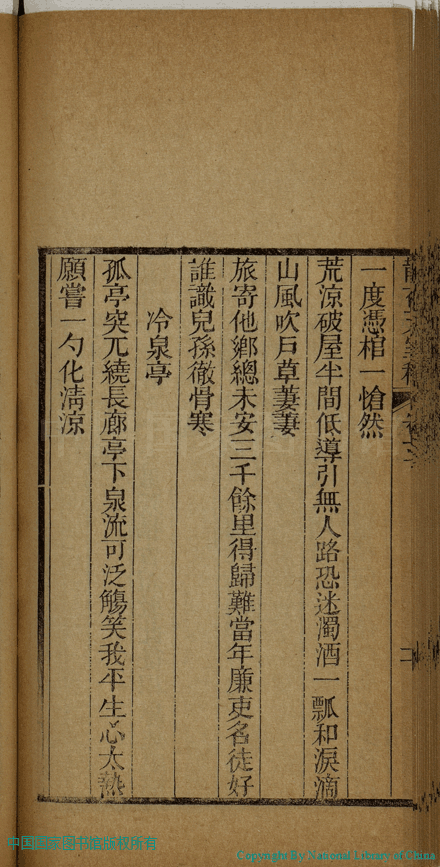 一度憑棺一愴然
荒涼破屋半間低導引無人路恐迷濁酒一瓢和淚滴
山風吹戶草萋萋
旅寄他鄉總未安三千餘里得歸難當年廉吏名徒好
誰識兒孫徹骨寒
冷泉亭
孤亭突兀繞長廊亭下泉流可泛觴笑我平生心太熱
願嘗一勺化清涼
中国国家图书馆版权所有
Copyright By National Library of China